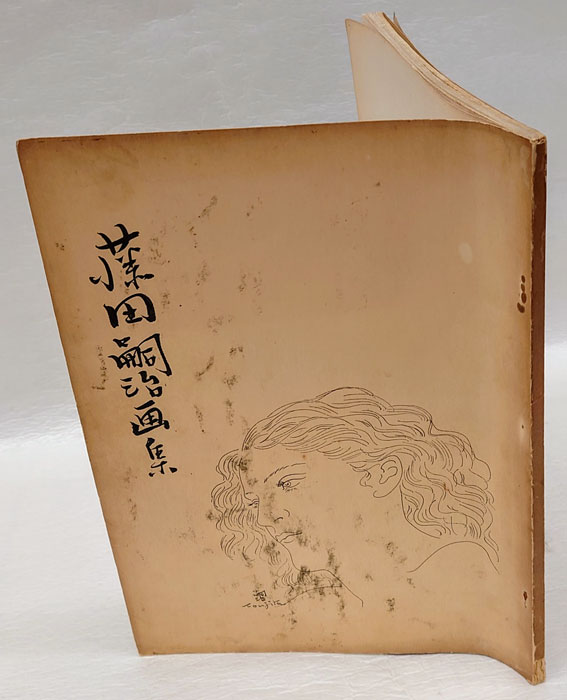 藤田嗣治画集
嗣治
Foujita